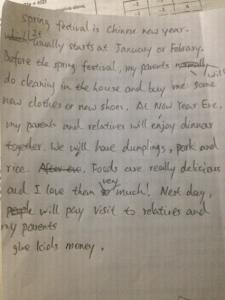 spring festival is Chinese new year.
It usually starts at January or Febrary.
Before the spring festival, my parents will
do cleaning in the house and buy me some
new clothes or new shoes. At New Year Eve,
my parents and relatives will enjoy dinner
together. We will have dumplings, pork and
rice. Foods are really delicious
and I love them very much! Next day,
people will pay visit to relatives and
my parents
give kids money.